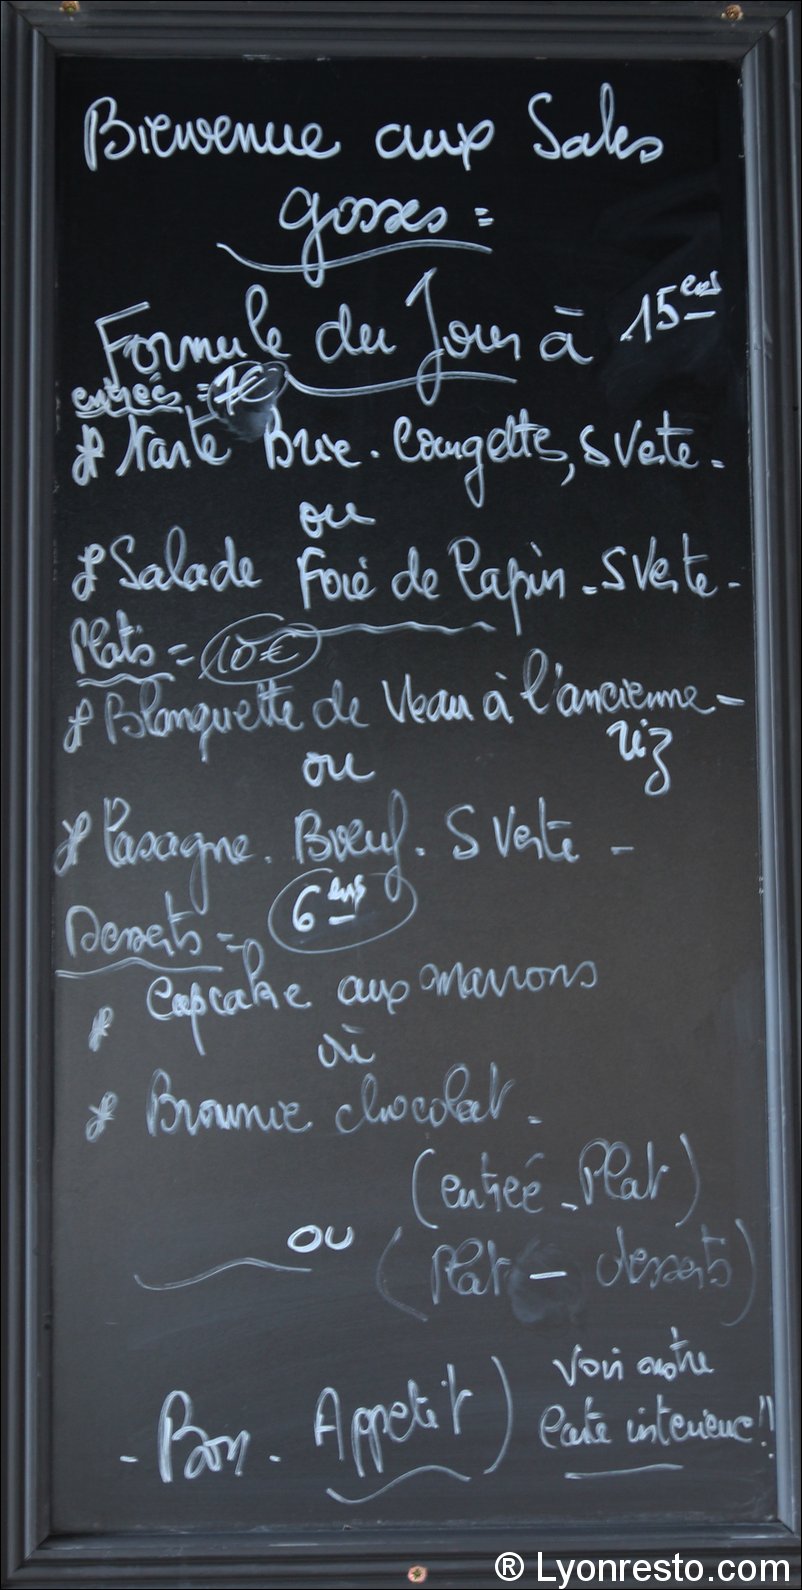 Bienvenue aux Sales
gosses =
Formule du Jour à 15 eus
entrées = 7€
* Tarte Brie. Courgettes, S Verte.
ou
* Salade Foie de Lapin - S Verte -
Plats = 10€
* Blanquette de Veau à l'ancienne -
riz
ou
* Lasagne. Boeuf. S Verte -
Desserts = 6 eus
* Cupcake aux marrons
ou
* Brownie chocolat.
(entrée - Plat)
ou (Plat - desserts)
- Bon. Appetit) Voir notre
Carte interieure!!
® Lyonresto.com